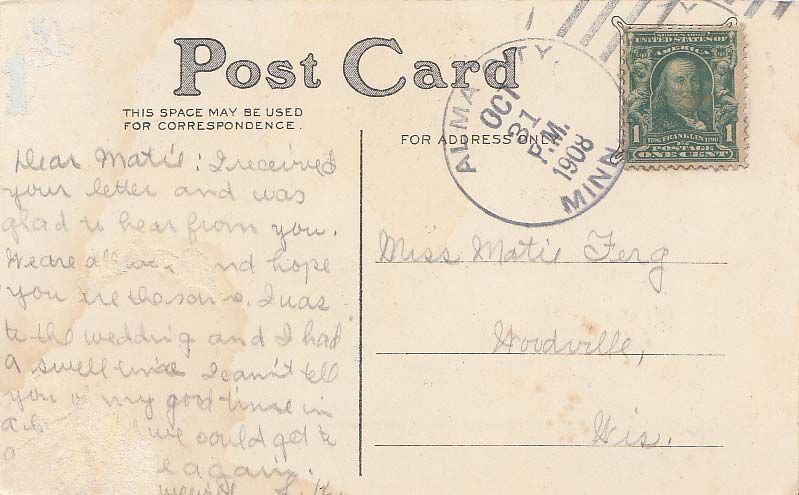 Post Card
THIS SPACE MAY BE USED
FOR CORRESPONDENCE.
FOR ADDRESS ONLY
ALMA CITY,
OCT
31
P.M.
1908
MINN
SERIES 1902
UNITED STATES OF
AMERICA
1 1706 FRANKLIN 1790 1
POSTAGE
ONE CENT
Dear Matie: I received
your letter and was
glad to hear from you.
We are all and hope
you are the same. I was
to the wedding and I had
a swell time I cannt tell
you of my good time in
we could get to
again.
Miss Matie Ferg
Woodville,
Wis.